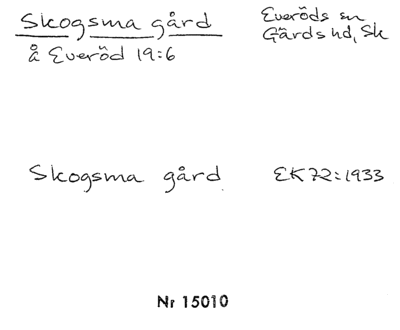 Skogsma gård
å Everöd 19:6
Everöds sn
Gärds hd, Sk
Skogsma gård EK72:1933
Nr 15010